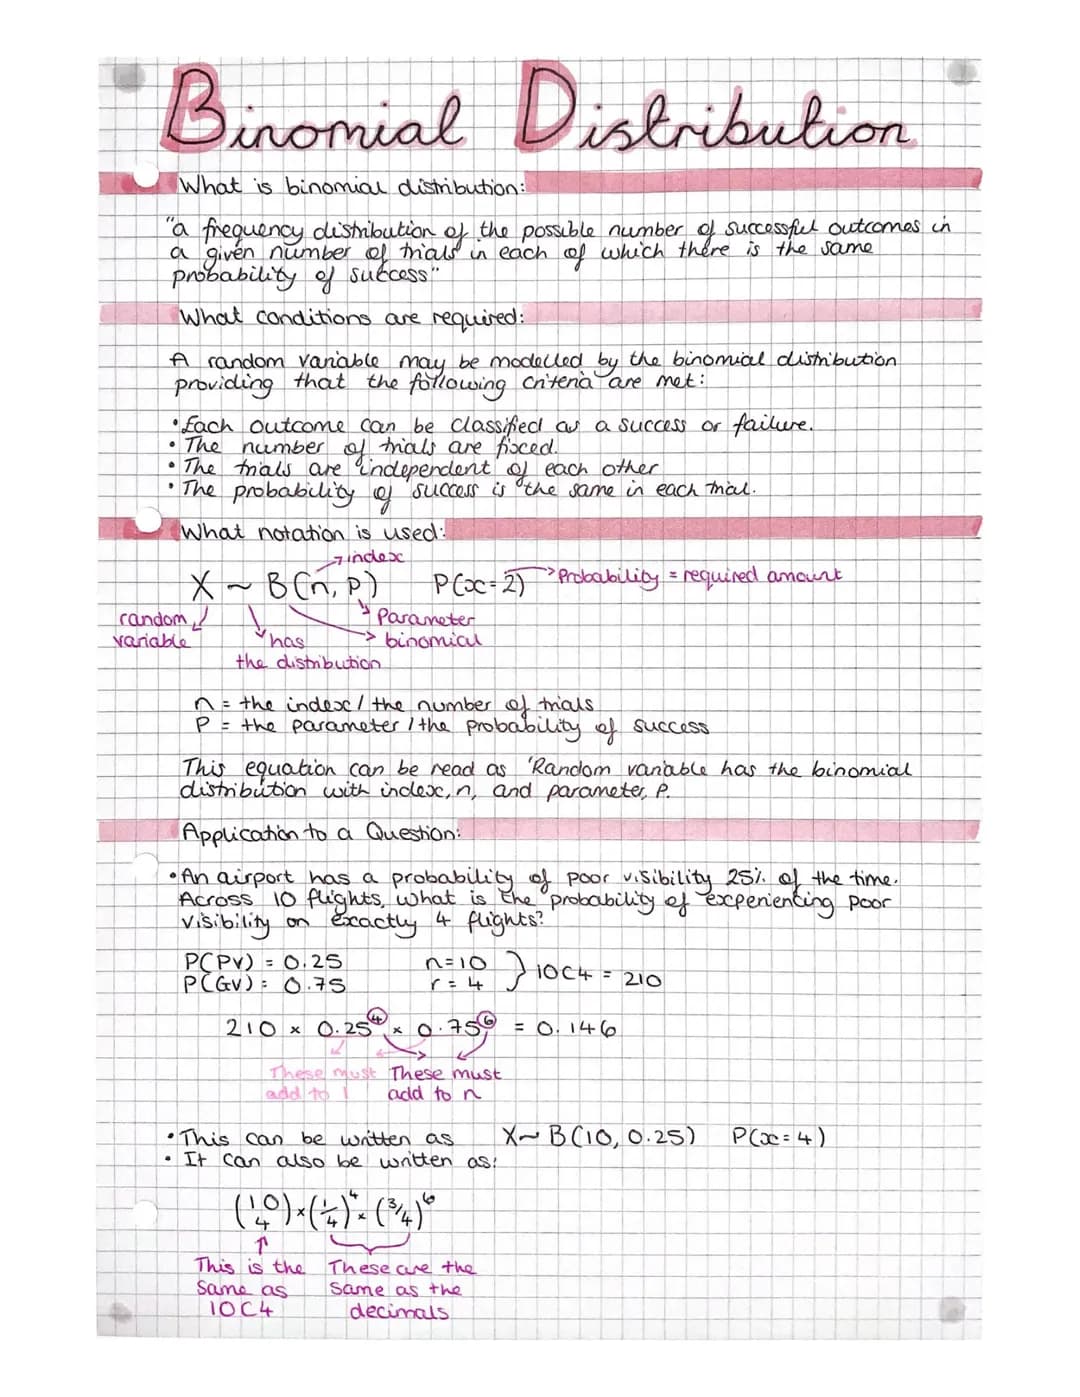 Binomial Distribution
What is binomial distribution:
"a frequency distribution of the possible number of successful outcomes in
a given number of trials in each of which there is the same
probability of success"
What conditions are required:
A random variable may be modelled by the binomial distribution
providing that the following criteria are met:
• Each outcome can be classified as a success or failure.
• The number of trials are fixed.
• The trials are independent of each other
• The probability of success is the same in each trial.
What notation is used:
index
X ~ B(n, p) P(x=2) Probability = required amount
random variable
Parameter
has the distribution
binomial
n = the index / the number of trials
P = the parameter / the probability of success
This equation can be read as 'Random variable has the binomial
distribution with index, n, and parameter, P.
Application to a Question:
• An airport has a probability of poor visibility 25% of the time.
Across 10 flights, what is the probability of experiencing poor
visibility on exactly 4 flights?
P(PV) = 0.25 n=10 } 10C4 = 210
P(GV) = 0.75 r = 4
210 × 0.25⁴ × 0.75⁶ = 0.146
These must add to 1
These must add to n
• This can be written as X~B(10, 0.25) P(x=4)
• It can also be written as:
(10 4) × (1/4)⁴ × (3/4)⁶
This is the same as 10C4
These are the same as the decimals